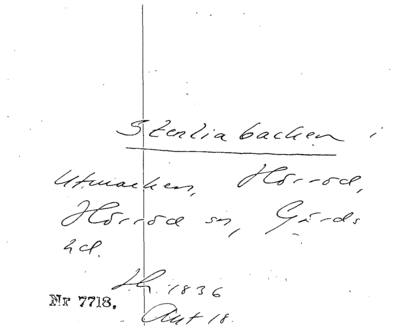 Stenliabacken i
Utmarken, Hörröd,
Hörröd sn, Gärds
hd.
Lh. 1836
Nr 7718. Akt 18.